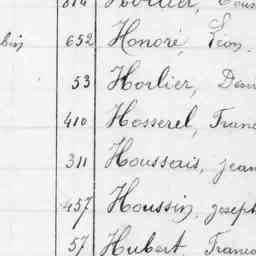 652 Honoré, Léon.
53 Horlier, Deni
410 Hosserel, Franc
311 Houssais, jean
457 Houssin, joseph
57 Hubert, Franco